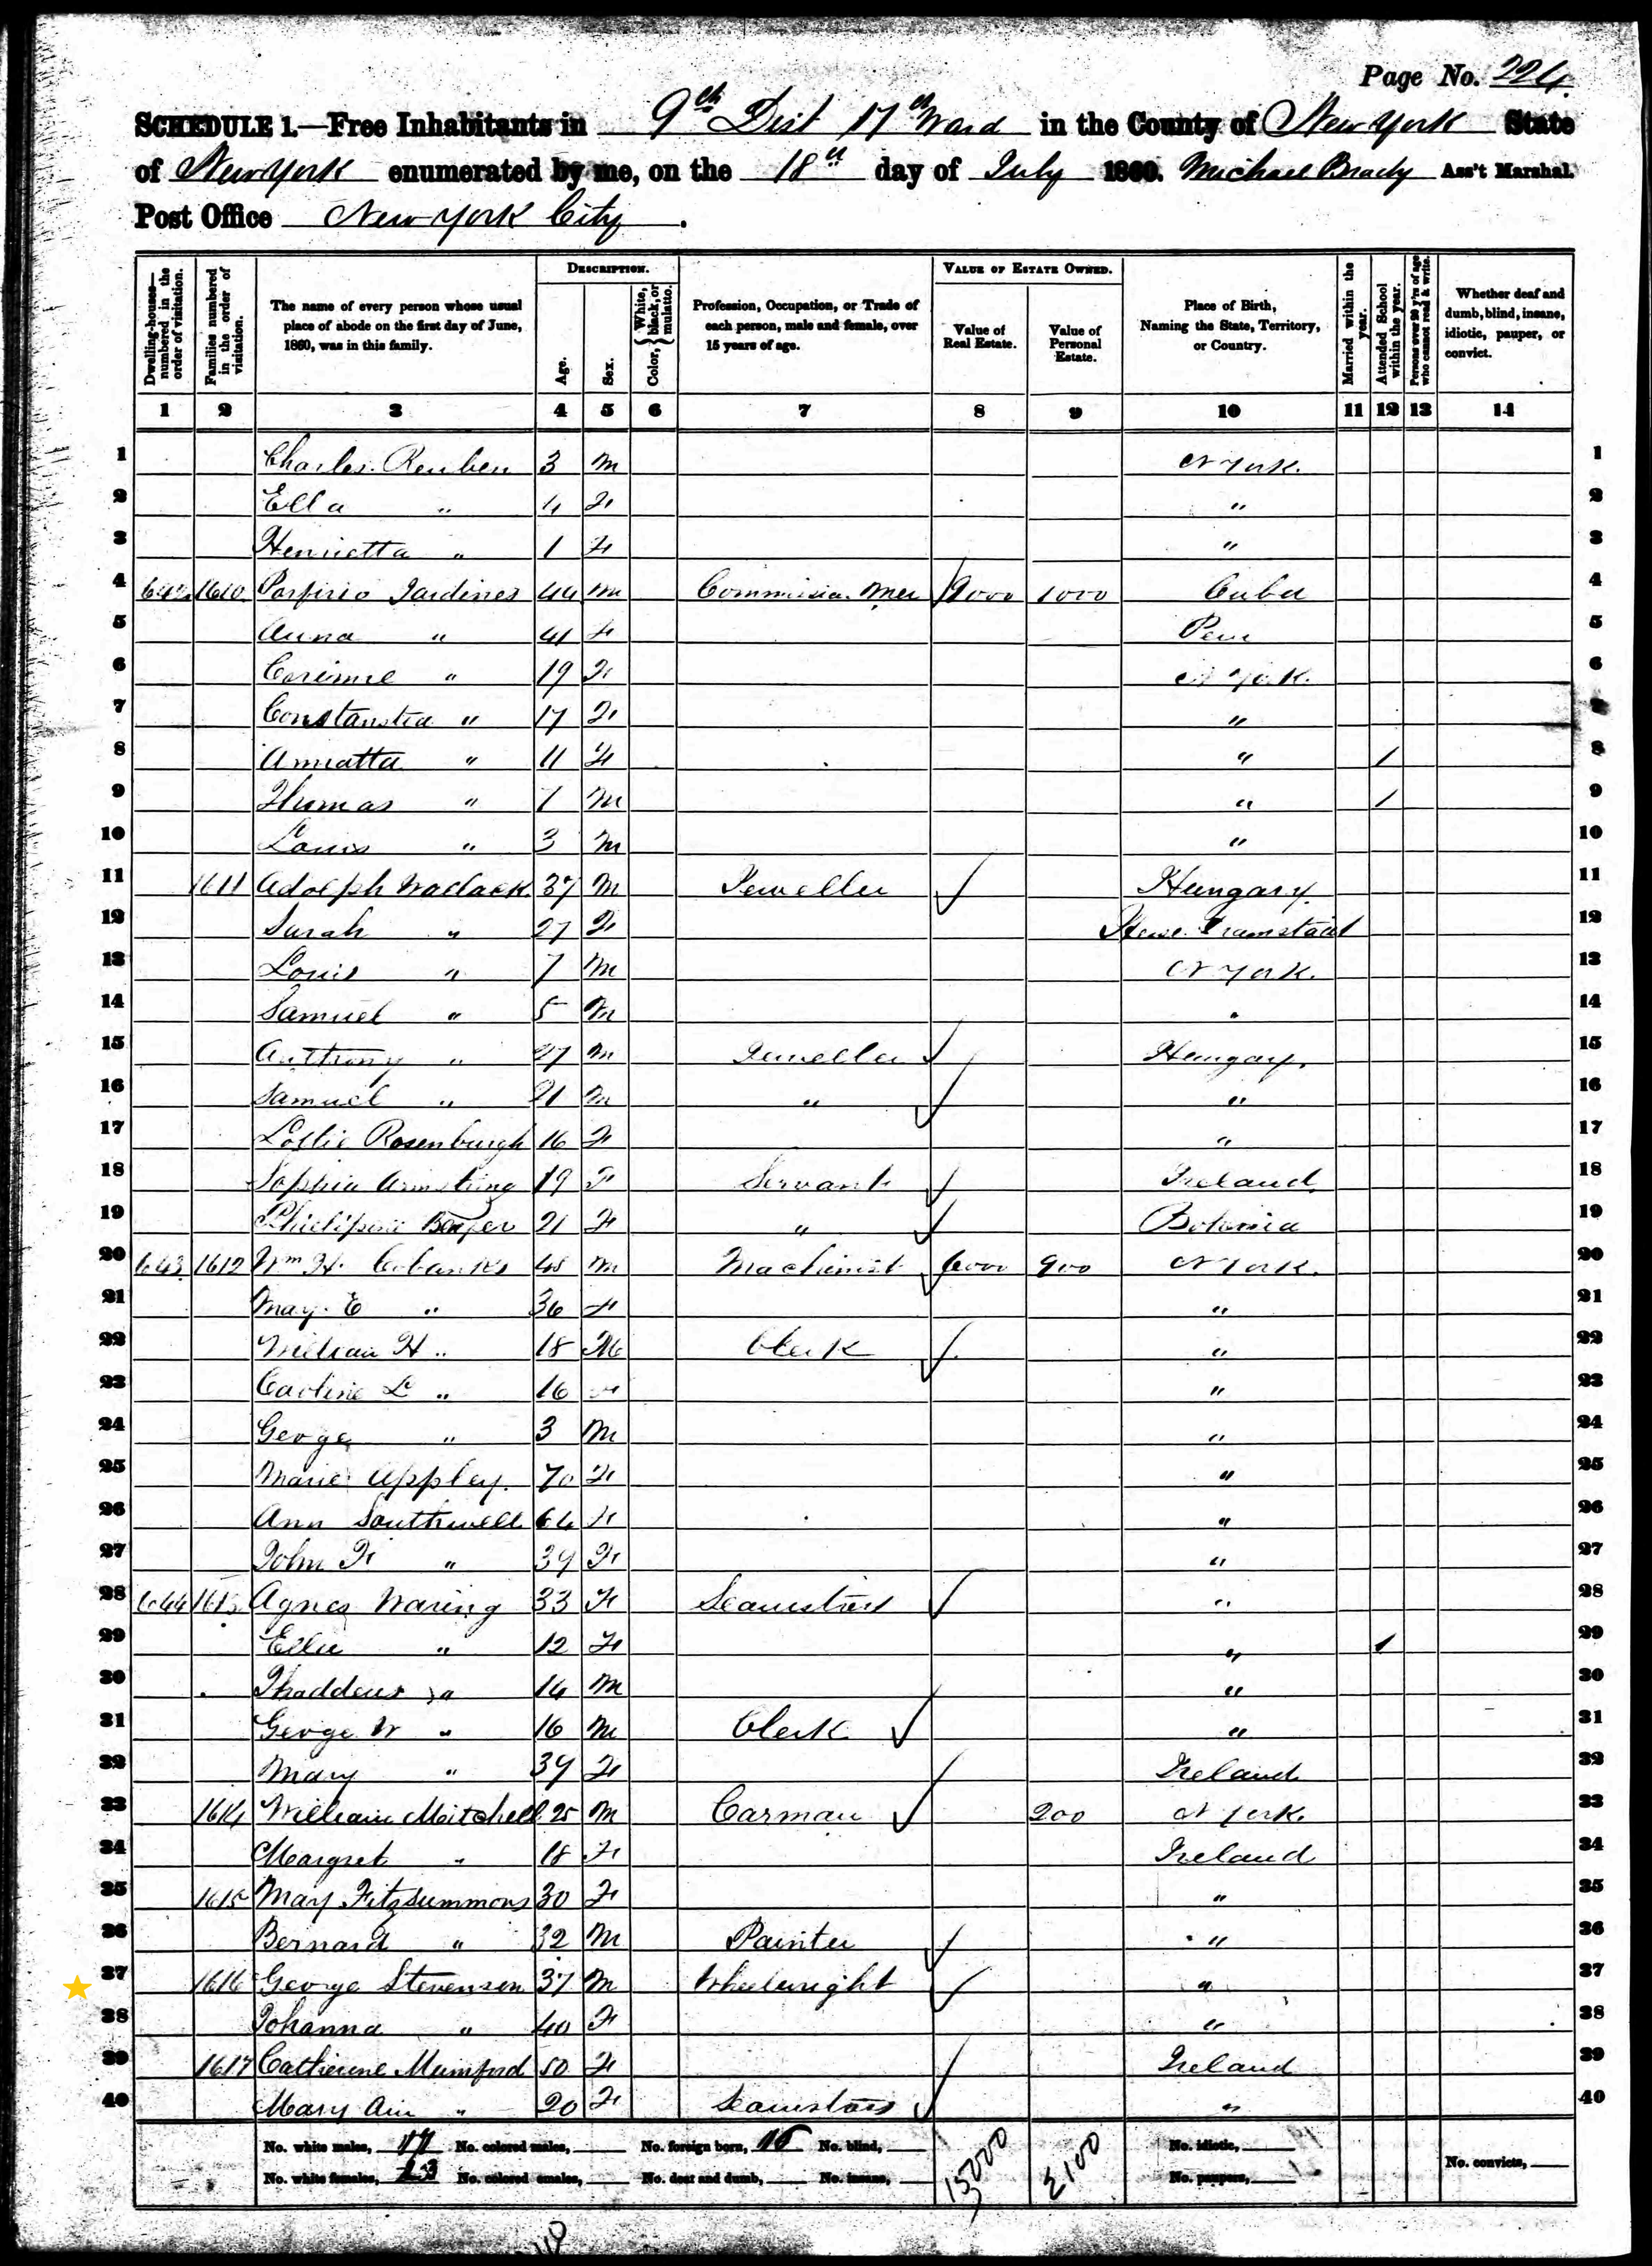 Page No. 224
SCHEDULE 1.—Free Inhabitants in 9th Dist 17th Ward in the County of New York State
of New York enumerated by me, on the 18th day of July 1860. Michael Brady Ass't Marshal.
Post Office New York City.
Dwelling-houses—numbered in the order of visitation.
Families numbered in the order of visitation.
The name of every person whose usual place of abode on the first day of June, 1860, was in this family.
DESCRIPTION.
Age.
Sex.
Color, { White, black, or mulatto.
Profession, Occupation, or Trade of each person, male and female, over 15 years of age.
VALUE OF ESTATE OWNED.
Value of Real Estate.
Value of Personal Estate.
Place of Birth, Naming the State, Territory, or Country.
Married within the year.
Attended School within the year.
Persons over 20 y'rs of age who cannot read & write.
Whether deaf and dumb, blind, insane, idiotic, pauper, or convict.
1 2 3 4 5 6 7 8 9 10 11 12 13 14
1 Charles Reuben 3 M N York. 1
2 Ella " 4 F " 2
3 Henrietta " 1 F " 3
4 642 1610 Porfirio Jardines 44 M Commission Mer 9000 1000 Cuba 4
5 Anna " 41 F Peru 5
6 " 19 F N York. 6
7 " 17 F "
8 " 11 F " / 8
9 Thomas " 7 M " / 9
10 Louis " 3 M " 10
11 1611 Adolph 37 M Jeweller ✓ Hungary. 11
12 Sarah " 27 F 12
13 Louis " 7 M N York. 13
14 Samuel " 5 M " 14
15 Anthony " 27 M Jeweller ✓ Hungary. 15
16 Samuel " 21 M " ✓ " 16
17 Rosenburgh 16 F " 17
18 Sophia Armstrong 19 F Servant ✓ Ireland 18
19 21 F " ✓ 19
20 643 1612 Wm H. 45 M Machinist ✓ 6000 900 N York. 20
21 May. E " 36 F " 21
22 William H " 18 M Clerk ✓ " 22
23 Caroline L " 16 F " 23
24 George " 3 M " 24
25 Marie Appley. 70 F " 25
26 Ann Southwell 64 F " 26
27 John F " 39 F " 27
28 644 1613 Agnes Waring 33 F Seamstress ✓ " 28
29 Ella " 12 F " / 29
30 Thaddeus " 14 M " 30
31 George W " 16 M Clerk ✓ " 31
32 Mary " 39 F Ireland 32
33 1614 William Mitchell 25 M Carman ✓ 200 N York. 33
34 Margret " 18 F Ireland 34
35 1615 Mary Fitzsummons 30 F " 35
36 Bernard " 32 M Painter ✓ " 36
37 1616 George Stevenson 37 M Wheelwright ✓ " 37
38 Johanna " 40 F " 38
39 1617 Catherine Mumford 50 F Ireland 39
40 Mary Ann " 20 F Seamstress ✓ " 40
No. white males, 17 No. colored males, No. foreign born, 16 No. blind, 15000 2100 No. idiotic,
No. white females, 23 No. colored females, No. deaf and dumb, No. insane, No. paupers, No. convicts,